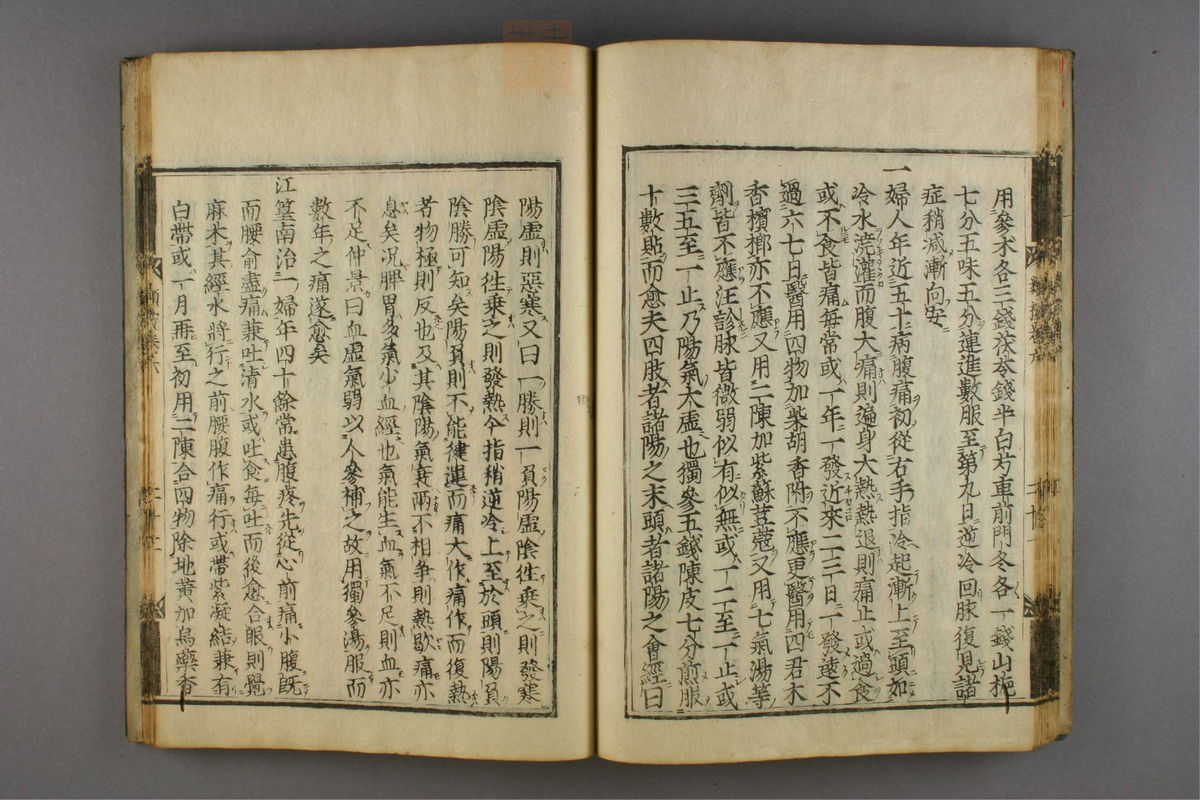 用參朮各三錢茯苓錢半白芍車前門冬各一錢山梔
七分五味五分連進數服至第九日逆冷回脉復見諸
症稍減漸向安
一婦人年近五十病腹痛初從右手指冷起漸上至頭如
冷水澆灌而腹大痛則遍身大熱熱退則痛止或過食
或不食皆痛每常或一年一發近來二三日一發遠不
過六七日醫用四物加柴胡香附不應更醫用四君木
香檳榔亦不應又用二陳加紫蘇荳蔻又用七氣湯等
劑皆不應汪診脉皆微弱似有似無或一二至一止或
三五至一止乃陽氣大虛也獨參五錢陳皮七分煎服
十數貼而愈夫四肢者諸陽之末頭者諸陽之會經曰
陽虛則惡寒又曰一勝則一負陽虛陰徃乘之則發寒
陰虛陽徃乘之則發熱今指稍逆冷上至於頭則陽負
陰勝可知矣陽負則不能健運而痛大作痛作而復熱
者物極則反也及其陰陽氣衰兩不相爭則熱歇痛亦
息矣况脾胃多氣少血經也氣能生血氣不足則血亦
不足仲景曰血虛氣弱以人參補之故用獨參湯服而
數年之痛遂愈矣
江篁南治一婦年四十餘常患腹疼先從心前痛小腹既
而腰俞盡痛兼吐清水或吐食每吐而後愈合眼則覺
麻木其經水將行之前腰腹作痛行或帶紫凝結兼有
白帶或一月再至初用二陳合四物除地黃加烏藥香